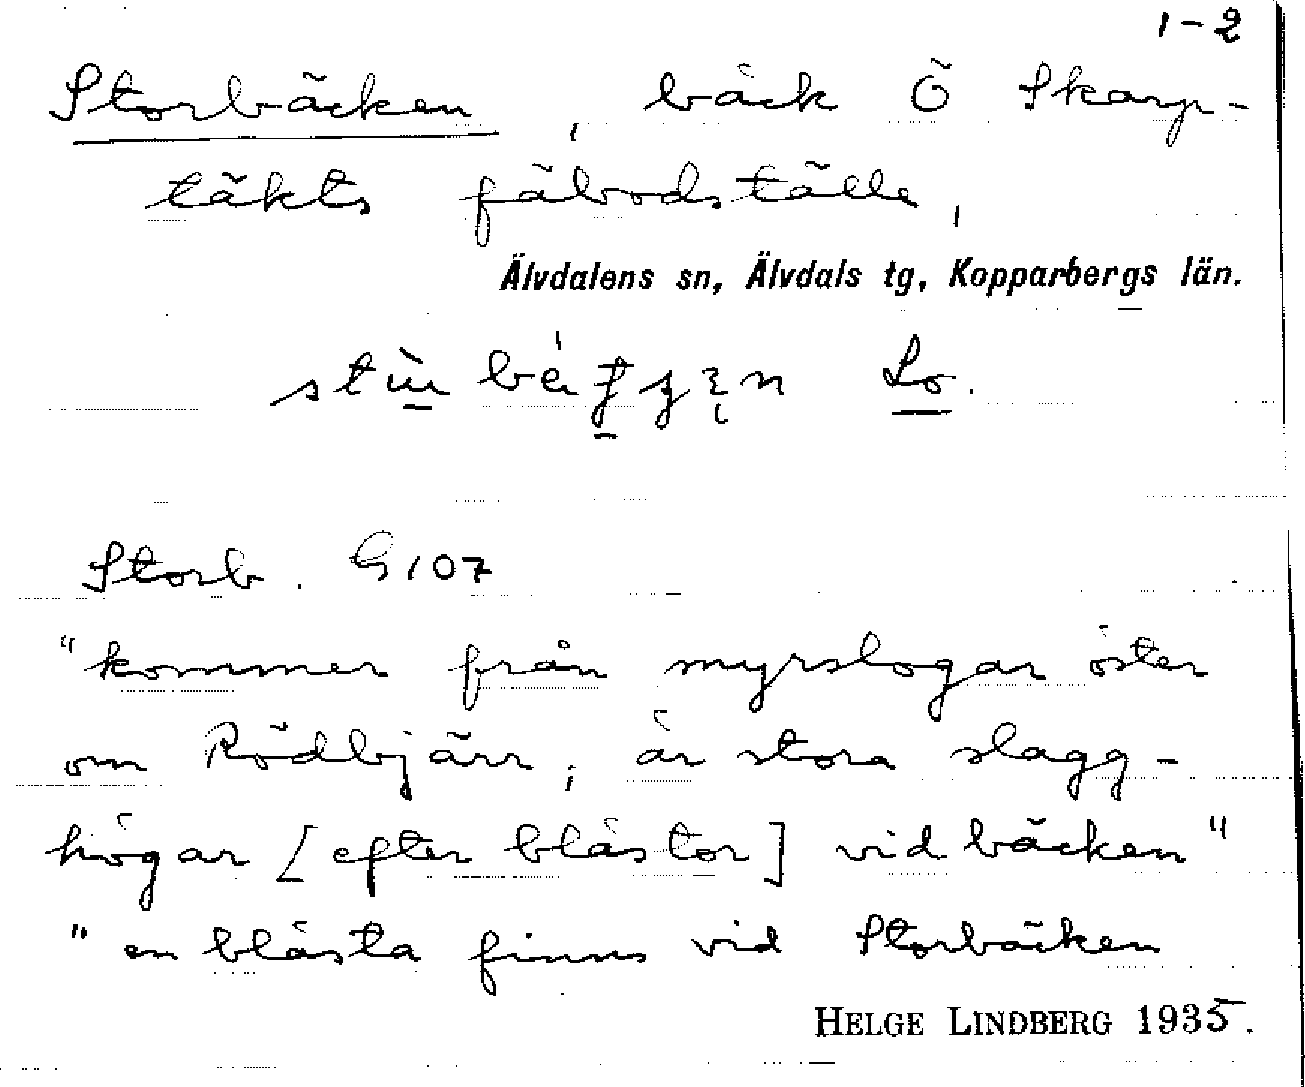 1-2
Storbäcken, bäck Ö Skarp-
täkts fäbodställe,
Älvdalens sn, Älvdals tg, Kopparbergs län.
So.
Storb. G107
"kommer från myrslogar öster
om Rödbjärr, är stora slagg-
högar [efter blåstor] vid bäcken"
"en blåsta finns vid Storbäcken
HELGE LINDBERG 1935.